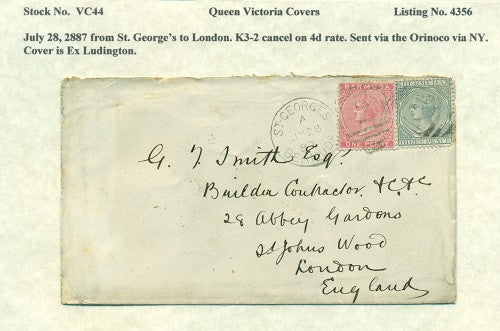 Stock No. VC44 Queen Victoria Covers Listing No. 4356
July 28, 2887 from St. George's to London. K3-2 cancel on 4d rate. Sent via the Orinoco via NY.
Cover is Ex Ludington.
BERMUDA BERMUDA
ST. GEORGES
A
JY 28
ONE PENNY THREE PENCE
G. F. Smith Esqr.
Builder Contractor &c &c
28 Abbey Gardens
St Johns Wood
London
England